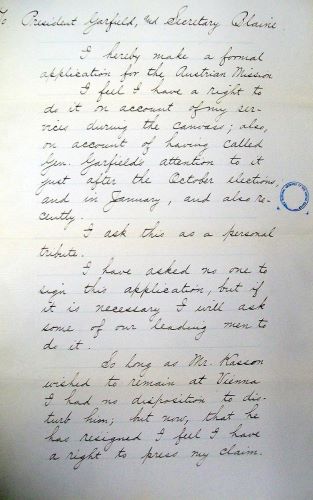 To President Garfield, and Secretary Blaine
I hereby make a formal
application for the Austrian Mission
I feel I have a right to
do it on account of my ser-
vices during the canvass; also,
on account of having called
Gen. Garfield's attention to it
just after the October elections,
and in January, and also re-
cently.
I ask this as a personal
tribute.
I have asked no one to
sign this application, but if
it is necessary I will ask
some of our leading men to
do it.
So long as Mr. Kasson
wished to remain at Vienna
I had no disposition to dis-
turb him; but now, that he
has resigned I feel I have
a right to press my claim.